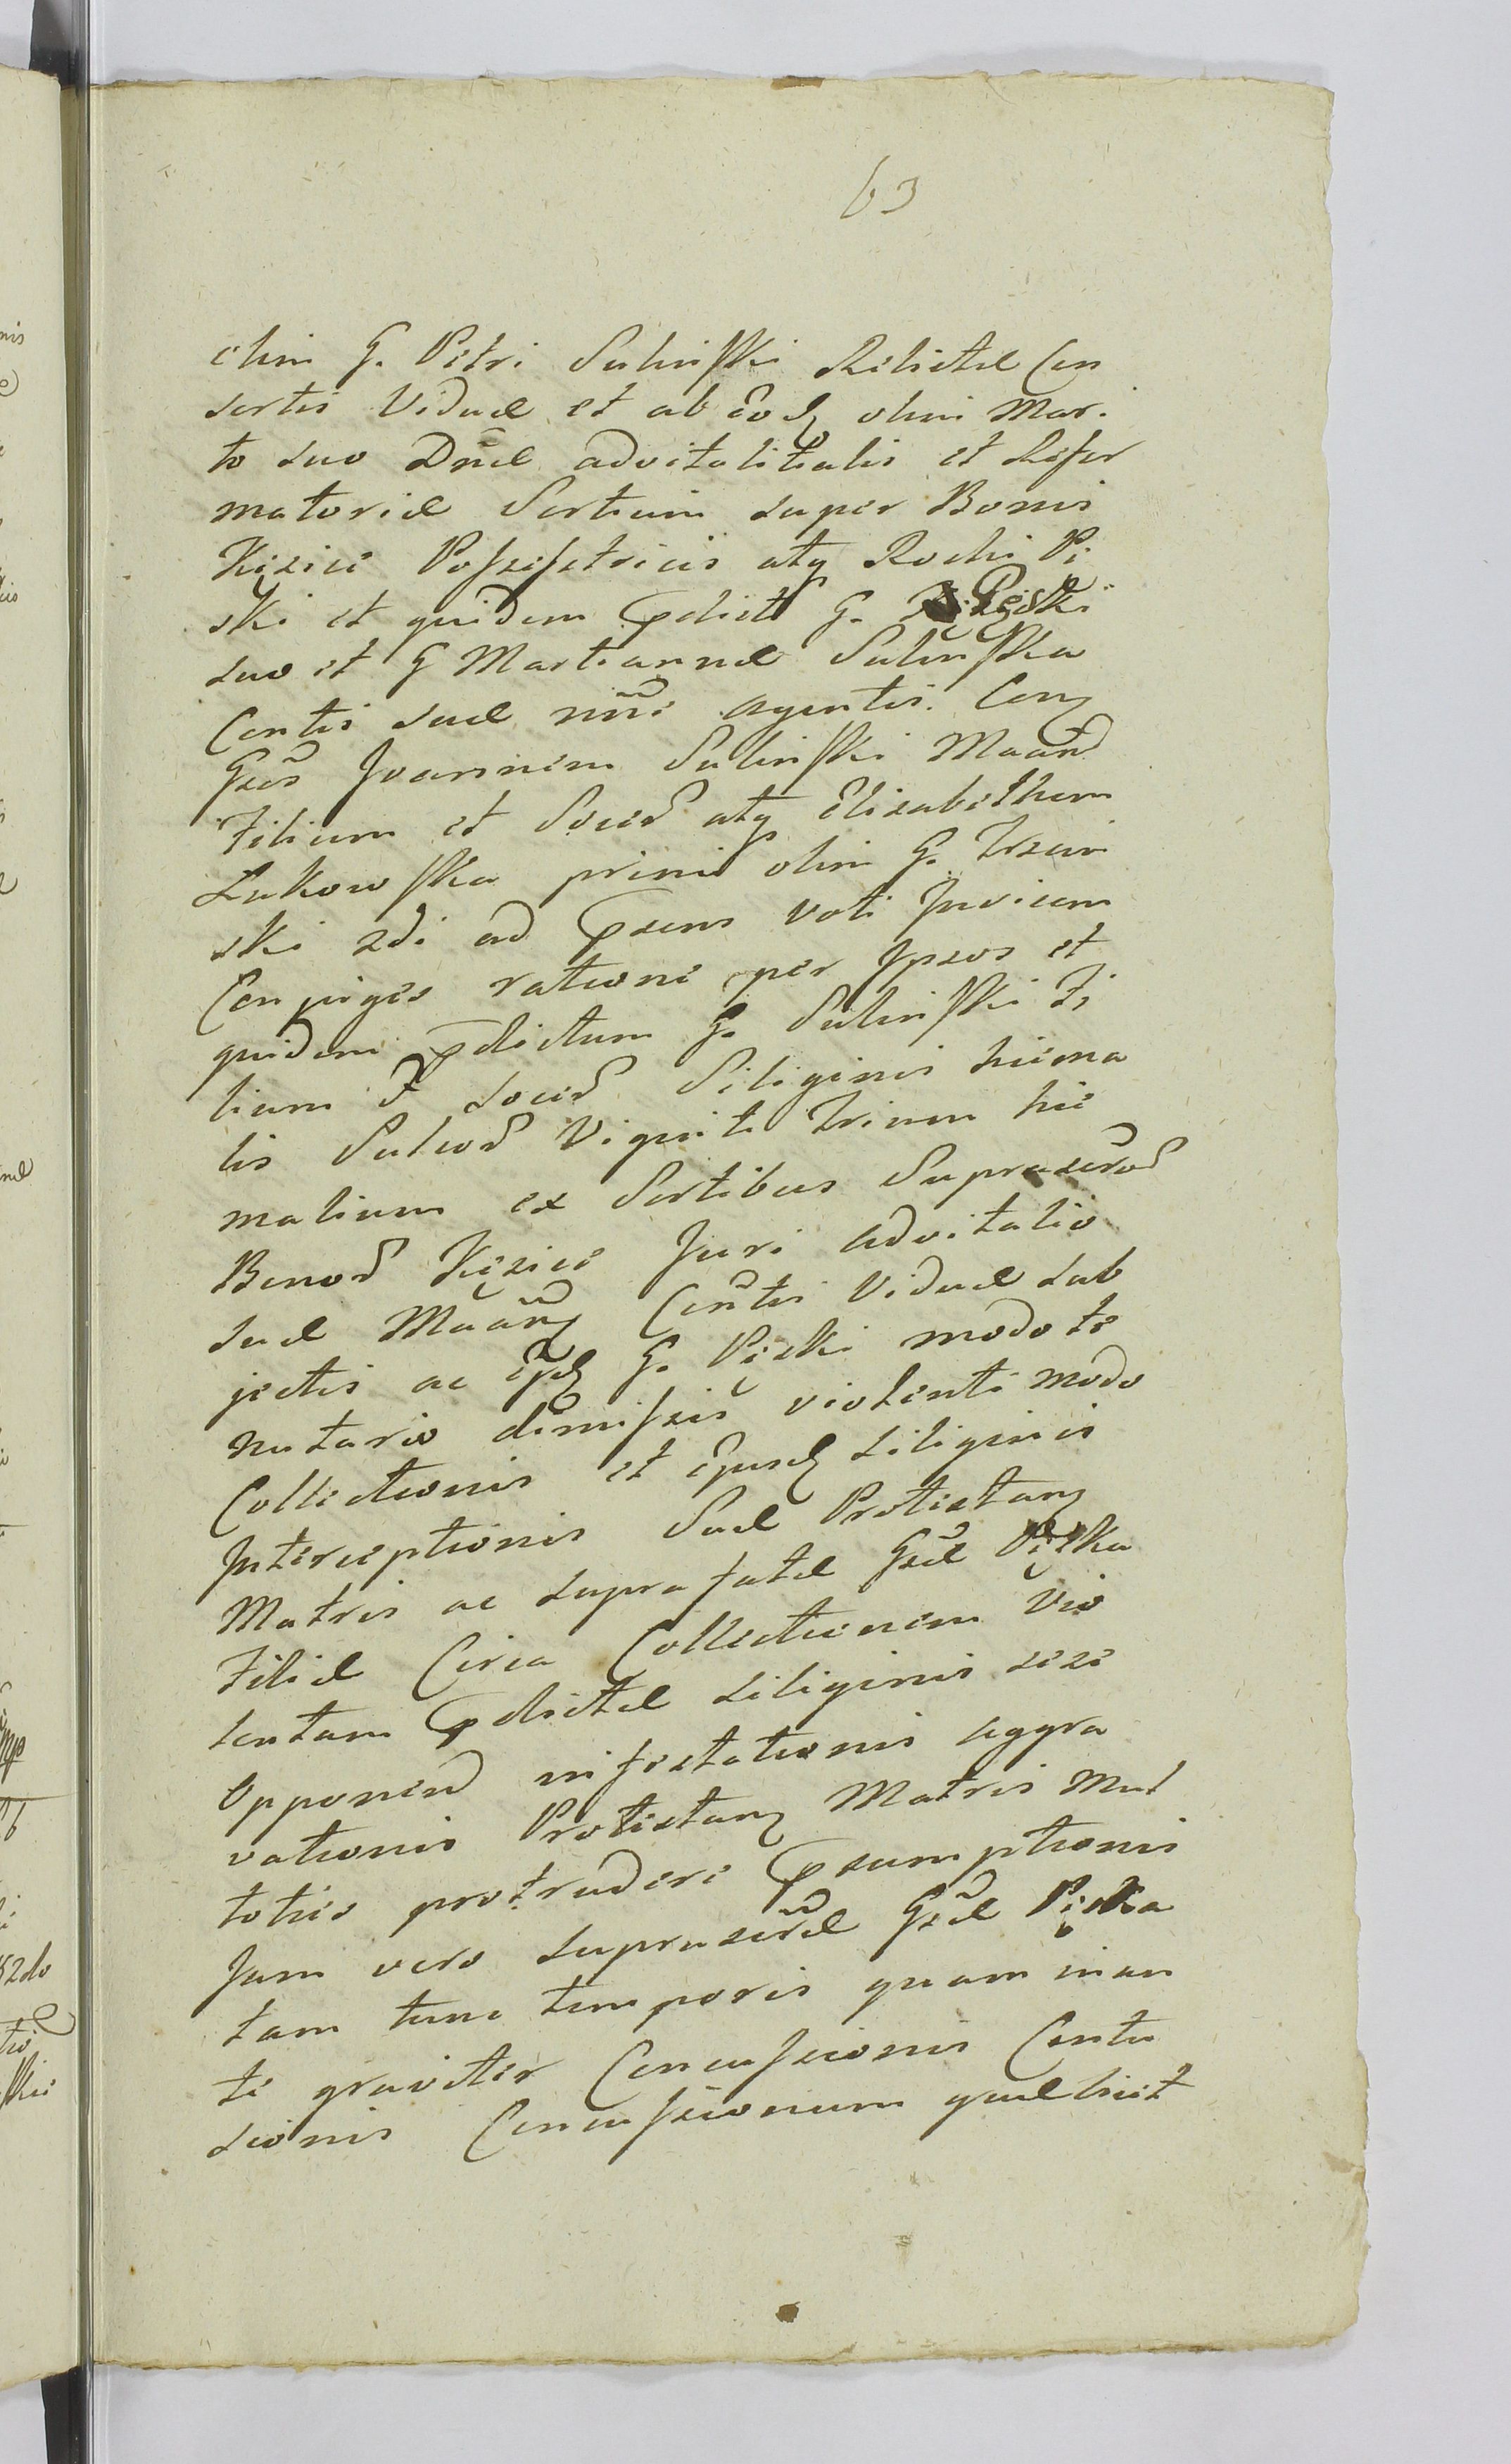 63
olim G. Petri Sulinski Relictæ Con
sortis Viduæ et ab eodq olim Mar.
to suo Dnæ advitalitialis et Refor
matoriæ Sortium super Bonis
Kęsice Possessetricis atq Rochi Pę
ski et quidem pdicti G. Pęski
suo et G Martiannæ Sulinska
Contis suæ nnē agentis. Conq
Gsūs Joannem Sulinski Maand
Filium et Soced atq Elisabetham
Lukowska primi olim G. Trzcin
ski 2di ad psens voti Invicem
Conjuges ratione per Ipsos et
quidem pdictum G. Sulinski Fi
lium et Soced Siliginis hiema
lis Sulcod Viginti Trium hie
malium ex Sortibus Suprascrod
Bonod Kęsice Juri advitalio
suæ Maanq Contis Viduæ sub
jectis ac epdq G. Pęski modo te
nutario dimissis violenti modo
Collectionis et ejusdq siliginis
Interceptionis Suæ Protestanq
Matris ac supra fatæ Gsæ Pęska
Filiæ Circa Collectionem Vio
lentam pdictæ siliginis sese
Opponend infestationis aggra
vationis Protestanq Matris Mul
toties protrudere psumptionis
Jam vero suprascræ Gsæ Pęska
tam tunc temporis quam inan
te graviter Concussionis Contu
sionis Concussionum quælicet